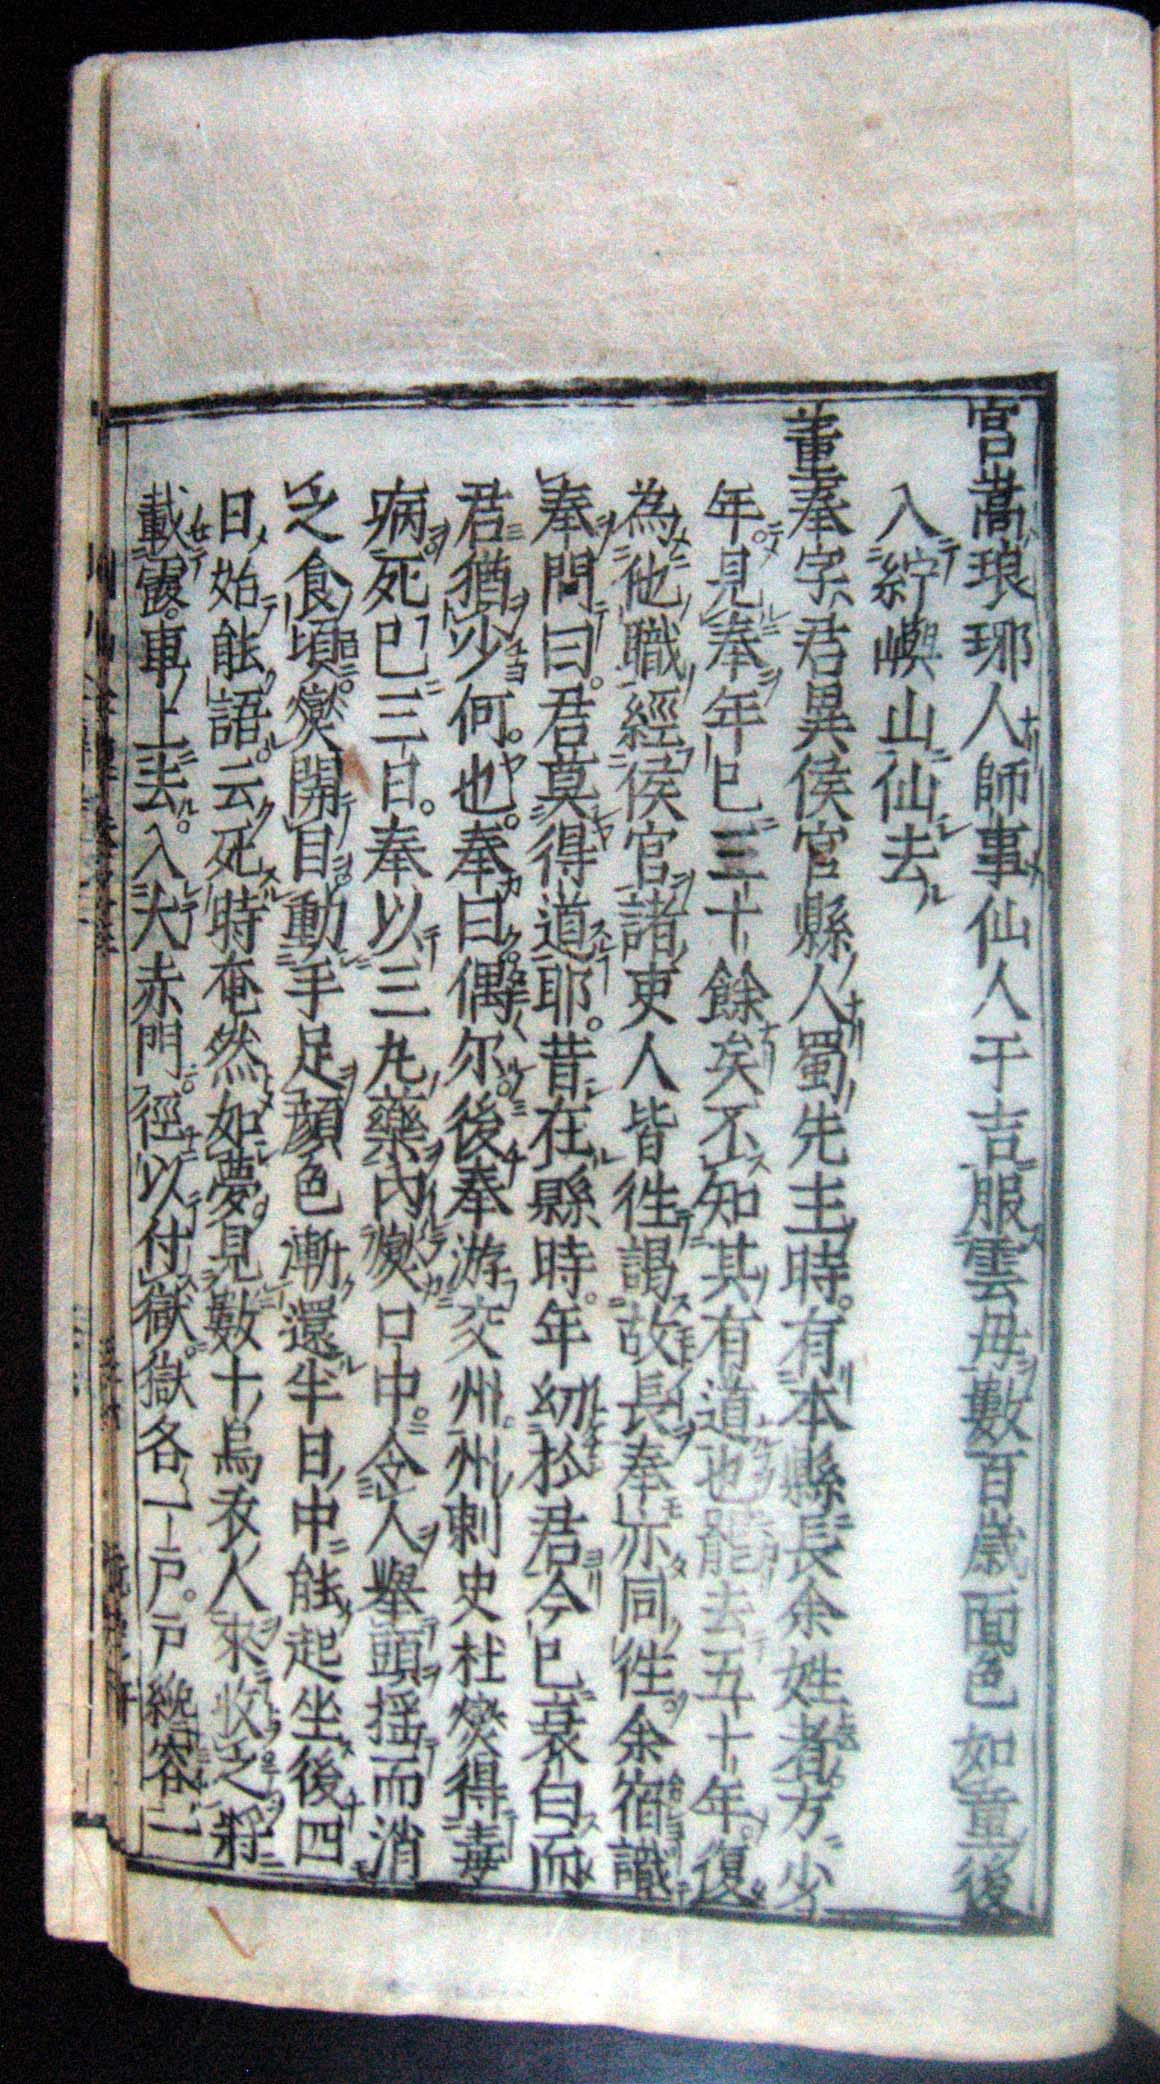 宮嵩琅琊人師事仙人于吉服雲毋數百歲面色如童後
入紵嶼山仙去
董奉字君異侯官縣人蜀先主時有本縣長余姓者方少
年見奉年已三十餘矣不知其有道也罷去五十年復
為他職經侯官諸吏人皆徃謁故長奉亦同徃余宿識
奉問曰君莫得道耶昔在縣時年幼於君今已衰白而
君猶少何也奉曰偶尔後奉游交州州刺史杜燮得毒
病死已三日奉以三丸藥內燮口中令人舉頭揺而消
之食頃燮開目動手足顏色漸還半日中能起坐後四
日始能語云死時奄然如夢見數十烏衣人來收之將
載露車上去入大赤門徑以付獄獄各一戶戶纔容一